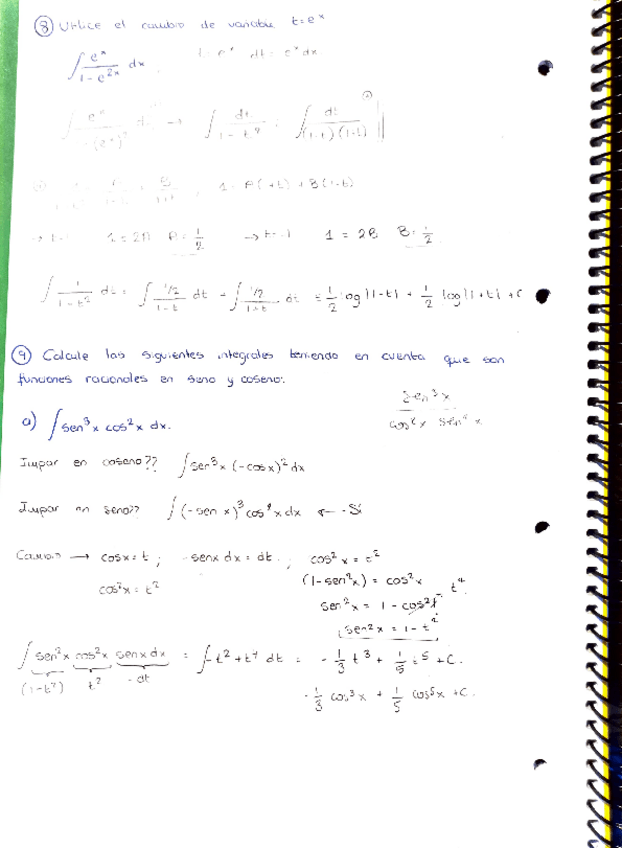 ⑧ Utilice el cambio de variable t=eˣ
∫ eˣ/(1-e²ˣ) dx t=eˣ dt=eˣdx
∫ eˣ/(1-(eˣ)²) dx → ∫ dt/(1-t²) = ∫ dt/((1+t)(1-t))
1= A(1+t) + B(1-t)
1=2A A=1/2 → t=-1 1=2B B=1/2
∫ 1/(1-t²) dt = ∫ (1/2)/(1-t) dt + ∫ (1/2)/(1+t) dt = 1/2 log|1-t| + 1/2 log|1+t| + C
⑨ Calcule las siguientes integrales teniendo en cuenta que son
funciones racionales en seno y coseno:
sen³x
a) ∫ sen³x cos²x dx.
Impar en coseno?? ∫ sen³x (-cosx)² dx
Impar en seno?? ∫ (-sen x)³ cos²x dx ← - Sí
Cambio → cosx=t ; -senx dx = dt ; cos²x = t²
cos²x = t² (1-sen²x) = cos²x
sen²x = 1 - cos²x
sen²x = 1 - t²
∫ sen²x cos²x senx dx = ∫ -t² + t⁴ dt = - 1/3 t³ + 1/5 t⁵ + C.
(1-t²) t² -dt
- 1/3 cos³x + 1/5 cos⁵x + C.